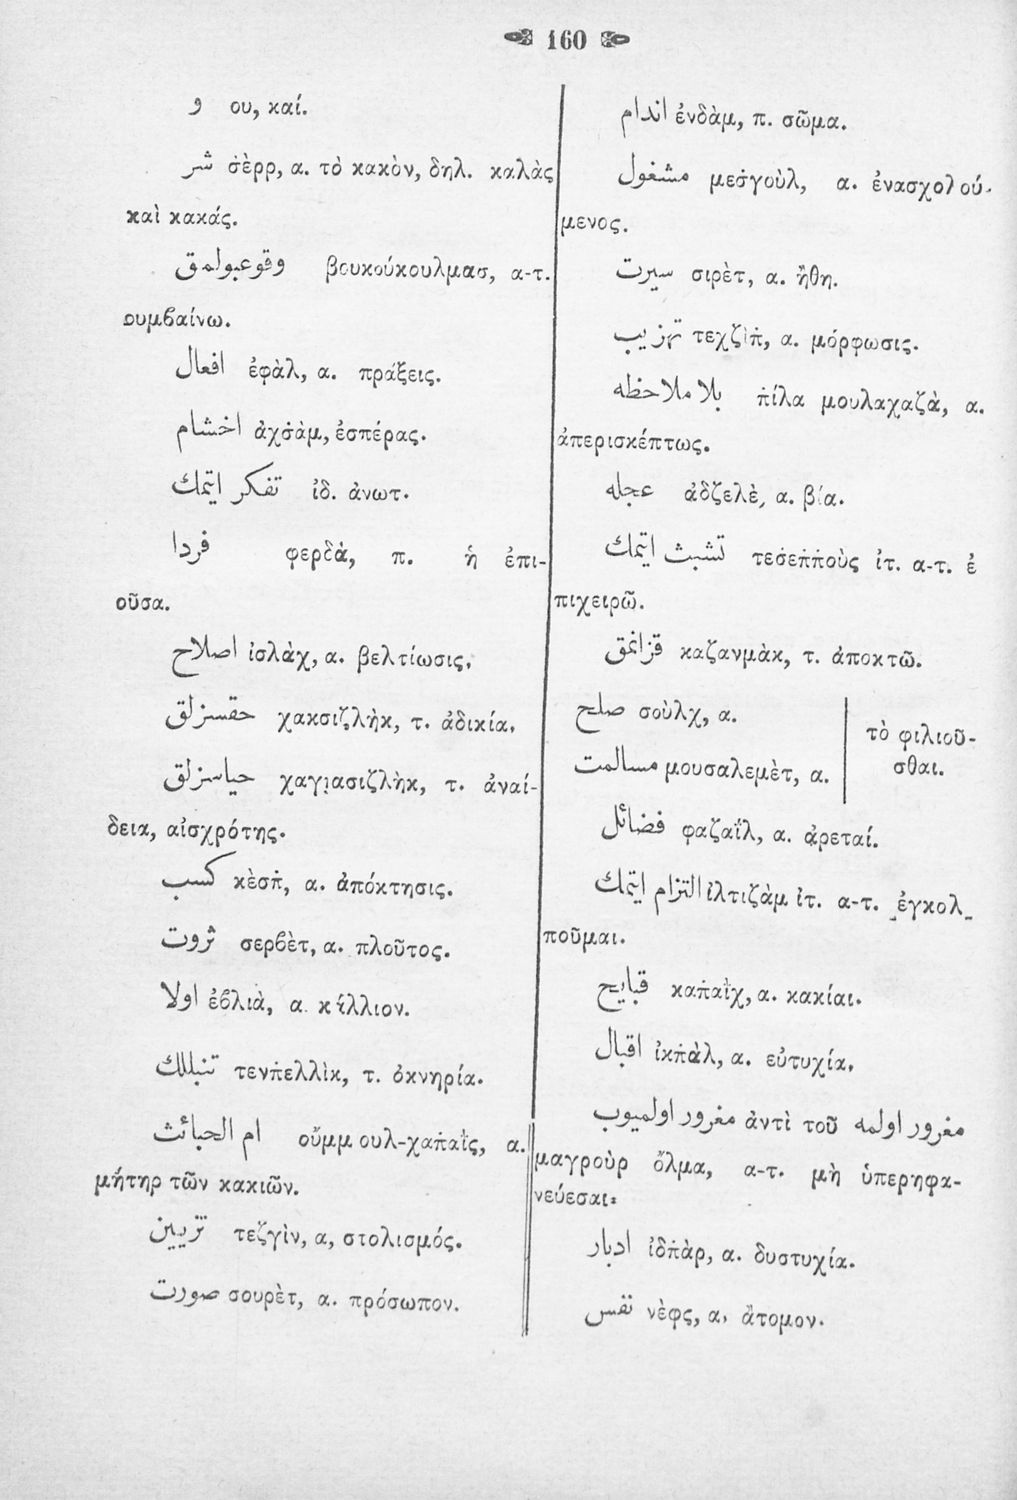 160
و ου, καί.
شر σ̇ὲρρ, α. τὸ κακὸν, δηλ. καλὰς
καὶ κακάς.
وقوعبولمق βουκούκουλμασ, α-τ.
συμβαίνω.
افعال ἐφὰλ, α. πράξεις.
اخشام ἀχσ̇ὰμ, ἑσπέρας.
تفكر ايتمك ἰδ. ἀνωτ.
فردا φερδὰ, π. ἡ ἐπι-
οῦσα.
اصلاح ἰσλὰχ, α. βελτίωσις.
حقسزلق χακσιζλὴκ, τ. ἀδικία.
حياسزلق χαγιασιζλὴκ, τ. ἀναί-
δεια, αἰσχρότης.
كسب κὲσπ̇, α. ἀπόκτησις.
ثروت σερβὲτ, α. πλοῦτος.
اولا ἐβλιὰ, α. κάλλιον.
تنبللك τενπ̇ελλὶκ, τ. ὀκνηρία.
ام الخبائث οὔμμ ουλ-χαπ̇αῒς, α.
μήτηρ τῶν κακιῶν.
تزيين τεζγὶν, α, στολισμός.
صورت σουρὲτ, α. πρόσωπον.
اندام ἐνδὰμ, π. σῶμα.
مشغول μεσ̇γοὺλ, α. ἐνασχολού-
μενος.
سيرت σιρὲτ, α. ἤθη.
تهزيب τεχζὶπ̇, α. μόρφωσις.
بلا ملاحظه π̇ίλα μουλαχαζὰ, α.
ἀπερισκέπτως.
عجله ἀδζελὲ, α. βία.
تشبث ايتمك τεσ̇επ̇π̇οὺς ἰτ. α-τ. ἐ
πιχειρῶ.
قزانمق καζανμὰκ, τ. ἀποκτῶ.
صلح σοὺλχ, α.
مسالمت μουσαλεμὲτ, α.
τὸ φιλιοῦ-
σθαι.
فضائل φαζαῒλ, α. ἀρεταί.
التزام ايتمك ἰλτιζὰμ ἰτ. α-τ. ἐγκολ-
ποῦμαι.
قبايح καπ̇αῒχ, α. κακίαι.
اقبال ἰκπ̇ὰλ, α. εὐτυχία.
مغرور اولمه ἀντὶ τοῦ مغرور اولميوب
μαγροὺρ ὄλμα, α-τ. μὴ ὑπερηφα-
νεύεσαι:
ادبار ἰδπ̇ὰρ, α. δυστυχία.
نفس νὲφς, α, ἄτομον.